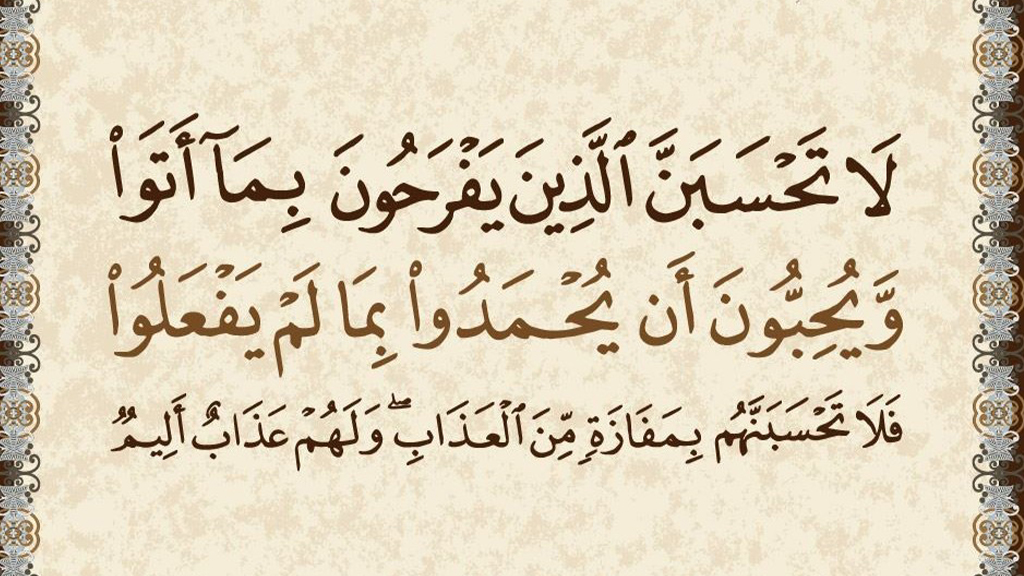 لَا تَحْسَبَنَّ ٱلَّذِينَ يَفْرَحُونَ بِمَآ أَتَوَا۟
وَّيُحِبُّونَ أَن يُحْمَدُوا۟ بِمَا لَمْ يَفْعَلُوا۟
فَلَا تَحْسَبَنَّهُم بِمَفَازَةٍ مِّنَ ٱلْعَذَابِ ۖ وَلَهُمْ عَذَابٌ أَلِيمٌ